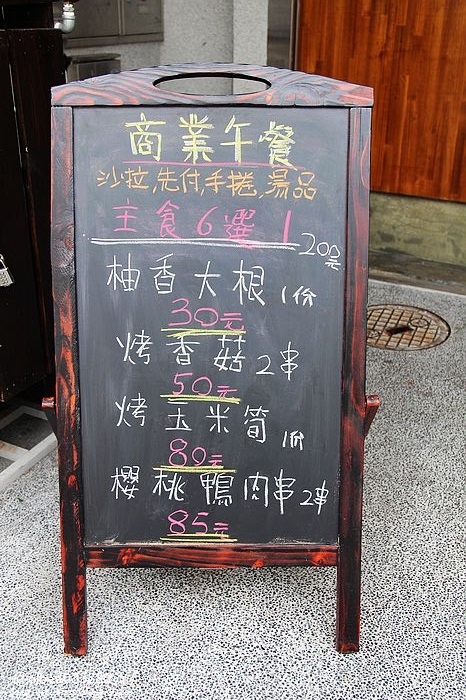 商業午餐
沙拉,先付,手捲,湯品
主食6選1
200元
柚香大根1份
30元
烤香菇2串
50元
烤玉米筍1份
80元
櫻桃鴨肉串2串
85元